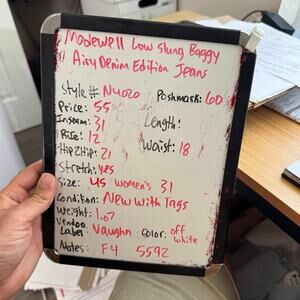 Madewell Low Slung Baggy
Airy Denim Edition Jeans
Style# NY020 Poshmark: 60
Price: 55
Inseam: 31 Length:
Rise: 12 Waist: 18
Hip2Hip: 21
Stretch: yes
Size: US Women's 31
Condition: New With Tags
Weight: 1.07
Vendoo Label Vaughn Color: off white
Notes: F4 5592